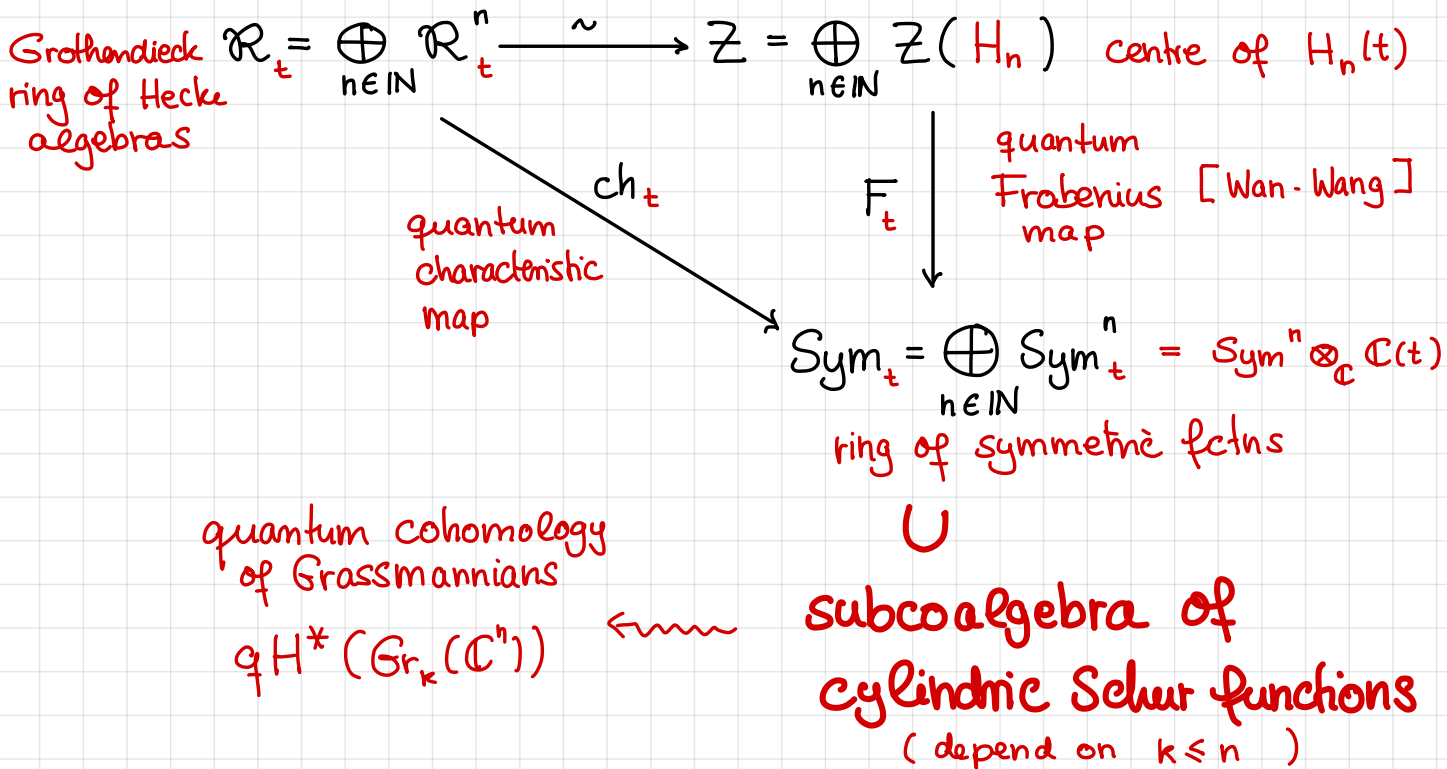 Grothendieck ring of Hecke algebras
ℛ_t = ⊕_{n∈ℕ} ℛ_t^n →~ Z = ⊕_{n∈ℕ} Z(H_n) centre of H_n(t)
ch_t
quantum
characteristic
map
F_t
quantum
Frobenius [Wan-Wang]
map
Sym_t = ⊕_{n∈ℕ} Sym_t^n = Sym^n ⊗_ℂ ℂ(t)
ring of symmetric fctns
∪
quantum cohomology
of Grassmannians
qH*(Gr_k(ℂ^n))
subcoalgebra of
cylindric Schur functions
(depend on k ≤ n)